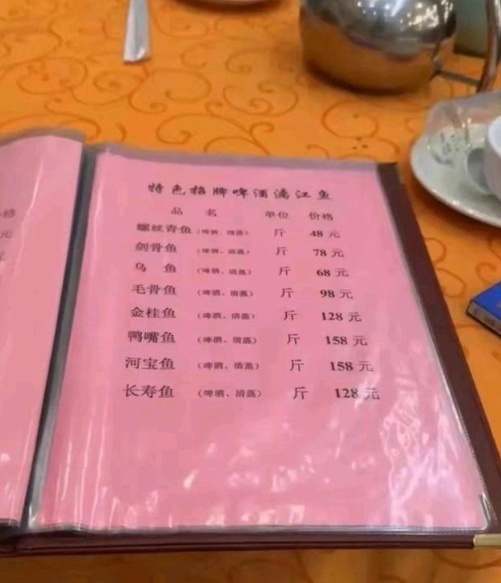 特色招牌啤酒漓江鱼
品 名 单位 价格
螺纹青鱼 (啤酒、清蒸) 斤 48 元
剑骨鱼 (啤酒、清蒸) 斤 78 元
乌 鱼 (啤酒、清蒸) 斤 68 元
毛骨鱼 (啤酒、清蒸) 斤 98 元
金桂鱼 (啤酒、清蒸) 斤 128 元
鸭嘴鱼 (啤酒、清蒸) 斤 158 元
河宝鱼 (啤酒、清蒸) 斤 158 元
长寿鱼 (啤酒、清蒸) 斤 128 元
格
元
元